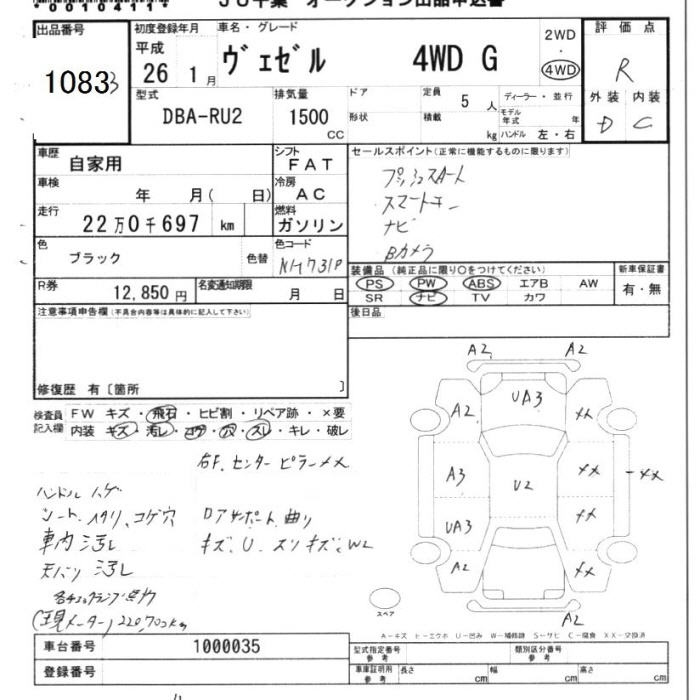 JU千葉 オークション出品申込書
出品番号
10833
初度登録年月
平成
26 1月
車名・グレード
ヴェゼル 4WD G
2WD
・
4WD
評価点
R
外装 内装
D C
型式
DBA-RU2
排気量
1500
CC
ドア
形状
定員
5 人
積載
kg
ディーラー・並行
モデル年式 年
ハンドル 左・右
車歴
自家用
シフト
FAT
車検
年 月( 日)
冷房
AC
走行
22万0千697 km
燃料
ガソリン
色
ブラック
色替
色コード
NH731P
R券
12,850円
名変通知期限
月 日
セールスポイント(正常に機能するものに限ります)
プッシュスタート
スマートキー
ナビ
Bカメラ
装備品(純正品に限り○をつけてください)
PS PW ABS エアB AW
SR ナビ TV カワ
新車保証書
有・無
後日品
注意事項申告欄(不具合内容等は具体的に記入して下さい)
修復歴 有〔箇所 〕
検査員記入欄
FW キズ・飛石・ヒビ割・リペア跡・×要
内装 キズ・汚レ・コゲ・穴・スレ・キレ・破レ
右F.センターピラーメメ
ハンドルハゲ
シート.ヘタリ.コゲ穴
ロアサポート.曲り
車内汚レ
キズ.U.スリキズ.W2
天バリ汚レ
各チェックランプ点灯
(現メーター)220,702kg
A2 A2
A2 UA3 ××
A3 U2 ×× ××
UA3 ××
A2 ××
A2
スペア
A-キズ ト-エクボ U-凹み W-補修跡 S-サビ C-腐食 XX-交換済
車台番号
1000035
登録番号
型式指定番号
参考
類別区分番号
参考
車庫証明用
参考
長さ cm 幅 cm 高さ cm